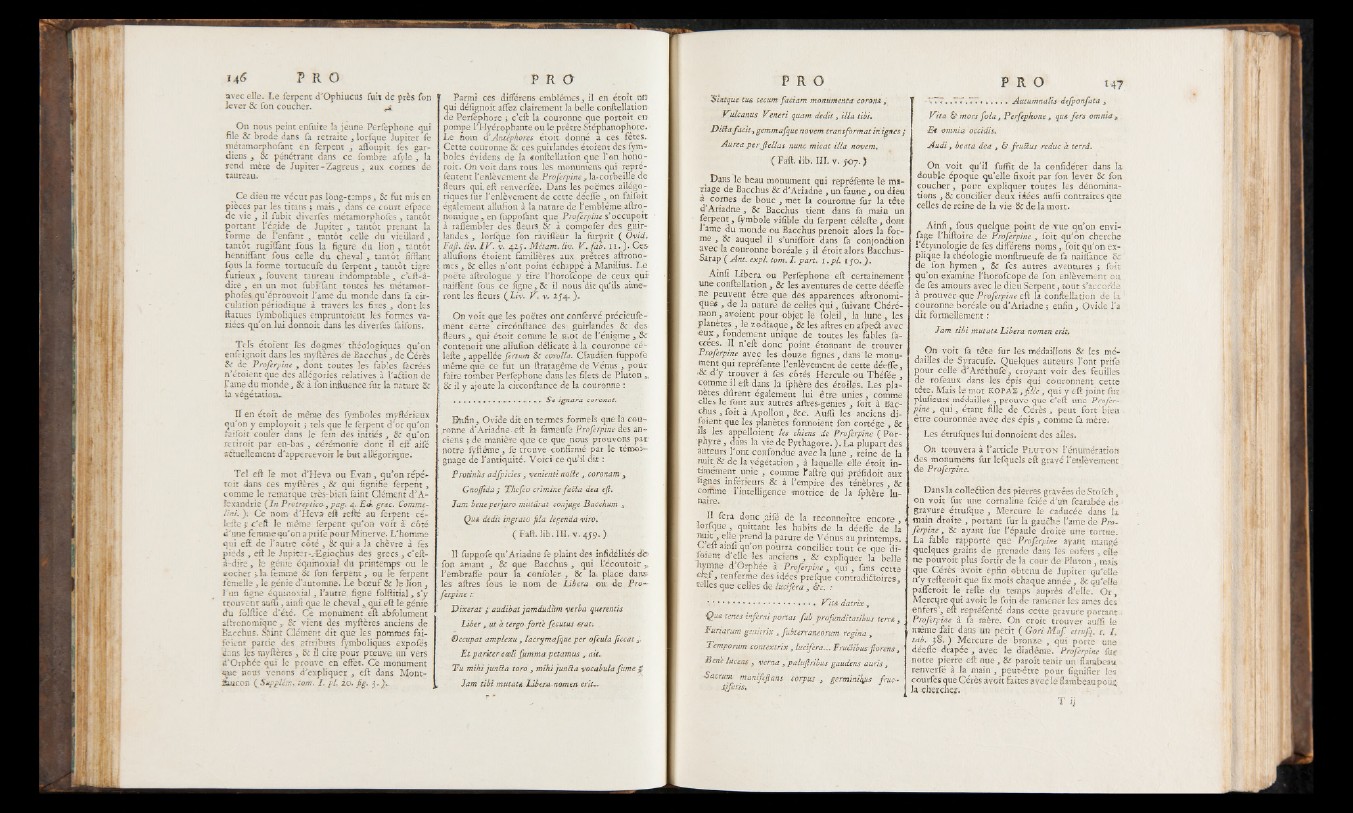 146 PRO
avec elle. Le serpent d'Ophiucus suit de près son
lever & son coucher.
On nous peint ensuite la jeune Perséphone qui
file & brode dans sa retraite, lorsque Jupiter se
métamorphosant en serpent, assoupit ses gar-
diens, & pénétrant dans ce sombre asyle, la
rend mère de Jupiter-Zagreus, aux cornes de
taureau.
Ce dieu ne vécut pas long-temps, & fut mis en
pièces par les titans; mais, dans ce court espace
de vie, il subit diverses métamorphoses, tantôt
portant l'égide de Jupiter, tantôt prenant la
forme de l'enfant, tantôt celle du vieillard,
tantôt rugissant sous la figure du lion, tantôt
hennissant sous celle du cheval, tantôt sifflant
sous la forme tortueuse du serpent, tantôt tigre
furieux, souvent taureau indomptable, c'est-à-
dire, en un mot subissant toutes les métamor-
phoses qu'éprouvoit l'ame du monde dans sa cir-
culation périodique à travers les fixes, dont les
statues symboliques empruntoient les formes va-
riées qu'on lui donnoit dans les diverses saisons.
Tels étoient les dogmes théologiques qu'on
enseignoit dans les mystères de Bacchus, de Cérès
& de Proserpine, dont toutes les fables sacrées
n'étoient que des allégories relatives à l'action de
l'ame du monde, & à son influence sur la nature &
la végétation.
Il en étoit de même des symboles mystérieux
qu'on y employoit; tels que le serpent d'or qu'on
faisoit couler dans le sein des initiés, & qu'on
retiroit par en-bas, cérémonie dont il est aisé
actuellement d'appercevoir le but allégorique.
Tel est le mot d'Heva ou Evan, qu'on répé-
toit dans ces mystères, & qui signifie serpent,
comme le remarque très-bien saint Clément d'A-
lexandrie (In Protreptico, pag. 4. Ed. græc. Comme-
lini.). Ce nom d'Heva est resté au serpent cé-
leste; c'est le même serpent qu'on voit à côté
d'une femme qu'on a prise pour Minerve. L'homme
qui est de l'autre côté, & qui a la chèvre à ses
pieds, est le Jupiter-Ægiochus des grecs, c'est-
à-dire, le génie équinoxial du printemps ou le
cocher; la femme & son serpent, ou le serpent
femelle, le génie d'automne. Le bœuf & le lion,
l'un signe équinoxial, l'autre signe solstitial, s'y
trouvent aussi, ainsi que le cheval, qui est le génie
du solstice d'été. Ce monument est absolument
astronomique, & vient des mystères anciens de
Bacchus. Saint Clément dit que les pommes fai-
soient partie des attributs symboliques exposés
dans les mystères, & il cite pour preuve un vers
d'Orphée qui le prouve en effet. Ce monument
que nous venons d'expliquer, est dans Mont-
faucon (Supplém. tom. I. pl. 20. fig. 3.).
PRO
Parmi ces différens emblêmes, il en étoit un
qui désignoit assez clairement la belle constellation
de Perséphore; c'est la couronne que portoit en
pompe l'Hyérophante ou le prêtre Stéphanophore.
Le nom d'Antéphores étoit donné à ces fêtes.
Cette couronne & ces guirlandes étoient des sym-
boles évidens de la constellation que l'on hono-
roit. On voit dans tous les monumens qui repré-
sentent l'enlèvement de Proserpine, la corbeille de
fleurs qui est renversée. Dans les poëmes allégo-
riques sur l'enlèvement de cette déesse, on faisoit
également allusion à la nature de l'emblême astro-
nomique, en supposant que Proserpine s'occupoit
à rassembler des fleurs & à composer des guir-
landes, lorsque son ravisseur la surprit (Ovid.
Fast. liv. IV. v. 425. Métam. liv. V. fab. 11.). Ces
allusions étoient familières aux prêtres astrono-
mes, & elles n'ont point échappé à Manilius. Le
poëte astrologue y tire l'horoscope de ceux qui
naissent sous ce signe, & il nous dit qu'ils aime-
ront les fleurs (Liv. V. v. 254.).
On voit que les poëtes ont conservé précieuse-
ment cette circonstance des guirlandes & des
fleurs, qui étoit comme le mot de l'énigme, &
contenoit une allusion délicate à la couronne cé-
leste, appellée sertum & corolla. Claudien suppose
même que ce fut un stratagême de Vénus, pour
faire tomber Perséphone dans les filets de Pluton,
& il y ajoute la circonstance de la couronne:
. . . . . . . . . . . . . . . . Se ignara coronat.
Enfin, Ovide dit en termes formels que la cou-
ronne d'Ariadne est la fameuse Proserpine des an-
ciens; de manière que ce que nous prouvons par
notre système, se trouve confirmé par le témoi-
gnage de l'antiquité. Voici ce qu'il dit:
Protinùs adspicies, venienti nocte, coronam,
Gnossida; Theseo crimine facta dea est.
Jam bene perjuro mutârat conjuge Bacchum,
Quæ dedit ingrato fila legenda viro.
(Fast. lib. III. v. 459.)
Il suppose qu'Ariadne se plaint des infidélités de
son amant, & que Bacchus, qui l'écoutoit,
l'embrasse pour la consoler, & la place dans
les astres sous le nom de Libera ou de Pro-
serpine:
Dixerat; audibat jamdudùm verba querentis
Liber, ut à tergo fortè secutus erat.
Occupat amplexu, lacrymasque per oscula siccat,
Et pariter cœli summa petamus, ait.
Tu mihi juncta toro, mihi juncta vocabula sume;
Jam tibi mutatæ Libera nomen erit.
PRO
Sintque tuæ tecum faciam monumenta coronæ,
Vulcanus Veneri quam dedit, illa tibi.
Dicta facit, gemmasque novem transformat in ignes;
Aurea per stellas nunc micat illa novem.
(Fast. lib. III. v. 507.)
Dans le beau monument qui représente le ma-
riage de Bacchus & d'Ariadne, un faune, ou dieu
à cornes de bouc, met la couronne sur la tête
d'Ariadne, & Bacchus tient dans sa main un
serpent, symbole visible du serpent céleste, dont
l'ame du monde ou Bacchus prenoit alors la for-
me, & auquel il s'unissoit dans sa conjonction
avec la couronne boréale; il étoit alors Bacchus-
Sarap (Ant. expl. tom. I. part. 1. pl. 150.).
Ainsi Libera ou Perséphone est certainement
une constellation, & les aventures de cette déesse
ne peuvent être que des apparences astronomi-
ques, de la nature de celles qui, suivant Chéré-
mon, avoient pour objet le soleil, la lune, les
planètes, le zodiaque, & les astres en aspect avec
eux, fondement unique de toutes les fables sa-
crées. Il n'est donc point étonnant de trouver
Proserpine avec les douze signes, dans le monu-
ment qui représente l'enlèvement de cette déesse,
& d'y trouver à ses côtés Hercule ou Thésée,
comme il est dans la sphère des étoiles. Les pla-
nètes dûrent également lui être unies, comme
elles le sont aux autres astres-génies, soit à Bac-
chus, soit à Apollon, &c. Aussi les anciens di-
soient que les planètes formoient son cortége, &
ils les appelloient les chiens de Proserpine (Por-
phyre, dans la vie de Pythagore.). La plupart des
auteurs l'ont confondue avec la lune, reine de la
nuit & de la végétation, à laquelle elle étoit in-
timement unie, comme l'astre qui présidoit aux
signes inférieurs & à l'empire des ténèbres, &
comme l'intelligence motrice de la sphère lu-
naire.
Il sera donc aisé de la reconnoître encore,
lorsque, quittant les habits de la déesse de la
nuit, elle prend la parure de Vénus au printemps.
C'est ainsi qu'on pourra concilier tout ce que di-
soient d'elle les anciens, & expliquer la belle
hymne d'Orphée à Proserpine, qui, sans cette
clef, renferme des idées presque contradictoires,
telles que celles de lucifera, &c.:
. . . . . . . . . . . . . . . . . . Vitæ datrix,
Quæ tenes inferni portas sub profunditatibus terræ,
Furiarum genitrix, subterraneorum regina,
Temporum contextrix, lucifera... Fructibus florens,
Benè lucens, verna, palustribus gaudens auris,
Sacrum manifestans corpus, germinibus fruc-
tiferis.
PRO 147
. . . . . . . . . . . . . . . . Autumnalis desponsata,
Vita & mors sola, Persephone, quæ fers omnia,
Et omnia occidis.
Audi, beata dea, & fructus reduc à terrâ.
On voit qu'il suffit de la considérer dans la
double époque qu'elle fixoit par son lever & son
coucher, pour expliquer toutes les dénomina-
tions, & concilier deux idées aussi contraires que
celles de reine de la vie & de la mort.
Ainsi, sous quelque point de vue qu'on envi-
sage l'histoire de Proserpine, soit qu'on cherche
l'étymologie de ses différens noms, soit qu'on ex-
plique la théologie monstrueuse de sa naissance &
de son hymen, & ses autres aventures; soit
qu'on examine l'horoscope de son enlèvement ou
de ses amours avec le dieu Serpent, tout s'accorde
à prouver que Proserpine est la constellation de la
couronne boréale ou d'Ariadne; enfin, Ovide l'a
dit formellement:
Jam tibi mutatæ Libera nomen erit.
On voit sa tête sur les médaillons & les mé-
dailles de Syracuse. Quelques auteurs l'ont prise
pour celle d'Aréthuse, croyant voir des feuilles
de roseaux dans les épis qui couronnent cette
tête. Mais le mot ΚΟΡΑΣ, fille, qui y est joint sur
plusieurs médailles, prouve que c'est une Proser-
pine, qui, étant fille de Cérès, peut fort bien
être couronnée avec des épis, comme sa mère.
Les étrusques lui donnoient des aîles.
On trouvera à l'article PLUTON l'énumération
des monumens sur lesquels est gravé l'enlèvement
de Proserpine.
Dans la collection des pierres gravées de Stosch,
on voit sur une cornaline sciée d'un scarabée de
gravure étrusque, Mercure le caducée dans la
main droite, portant sur la gauche l'ame de Pro-
serpine, & ayant sur l'épaule droite une tortue.
La fable rapporte que Proserpine ayant mangé
quelques grains de grenade dans les enfers, elle
ne pouvoit plus sortir de la cour de Pluton, mais
que Cérès avoit enfin obtenu de Jupiter qu'elle
n'y resteroit que six mois chaque année, & qu'elle
passeroit le reste du temps auprès d'elle. Or,
Mercure qui avoit le soin de ramener les ames des
enfers, est représenté dans cette gravure portant
Proserpine à sa mère. On croit trouver aussi le
même fait dans un petit (Gori Mus. etrusq. t. I.
tab. 38.) Mercure de bronze, qui porte une
déesse drapée, avec le diadême. Proserpine sur
notre pierre est nue, & paroît tenir un flambeau
renversé à la main, peut-être pour signifier les
courses que Cérès avoit faites avec le flambeau pour
la chercher.
T ij